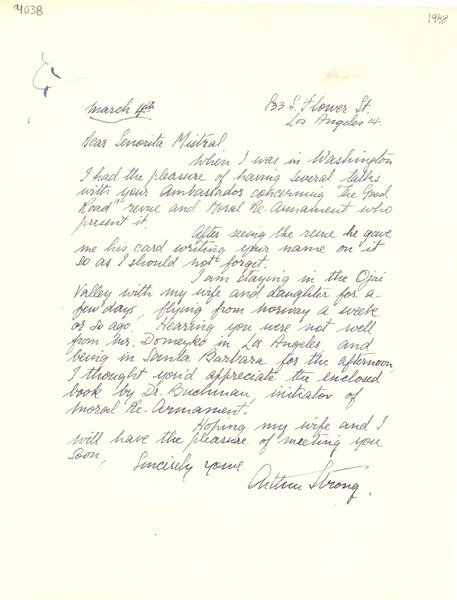 4038
1948
March 4th
833 S. Flower St.
Los Angeles 14.
Dear Senorita Mistral
When I was in Washington
I had the pleasure of having several talks
with your Ambassador concerning "The Good
Road" revue and Moral Re-Armament who
present it.
After seeing the revue he gave
me his card writing your name on it
so as I should not forget.
I am staying in the Ojai
Valley with my wife and daughter for a
few days, flying from Norway a week
or so ago. Hearing you were not well
from Mr. Domeyko in Los Angeles, and
being in Santa Barbara for the afternoon,
I thought you'd appreciate the enclosed
book by Dr. Buchman, initiator of
Moral Re-Armament.
Hoping my wife and I
will have the pleasure of meeting you
soon,
Sincerely yours
Arthur Strong.